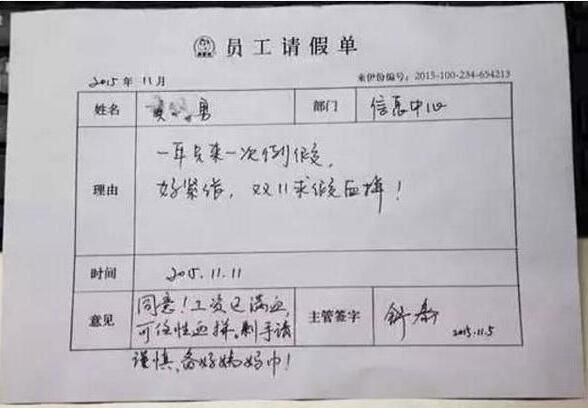 员工请假单
2015年11月
来伊份编号：2015-100-234-654213
姓名 黄 男 部门 信息中心
一年只来一次例假，
理由
好紧张，双11求假血拼！
时间 2015.11.11
同意！工资已满血，
意见 可任性血拼。剁手请 主管签字 2015.11.5
谨慎，备好妈妈巾！